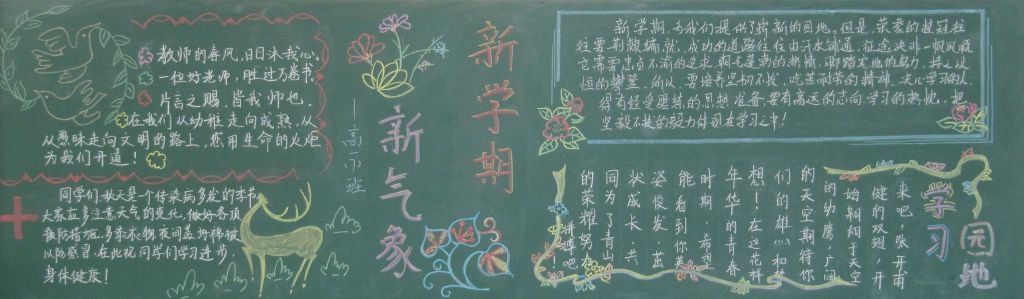 教师的春风，日日沐我心，
一位好老师，胜过万卷书，
片言之赐，皆我师也，
在我们从幼稚走向成熟，从
从愚昧走向文明的路上，您用生命的火炬
为我们开道！
同学们，秋天是个传染病多发的季节，
大家应多注意天气的变化，做好各项
预防措施，多添衣物，夜间盖好棉被
以防感冒，在此祝同学们学习进步，
身体健康！
新学期
新气象
新学期，为我们提供了崭新的园地。但是，荣誉的桂冠往
往要荆棘编就，成功的道路往往由汗水铺通，征途决非一帆风顺
恒的攀登，所以，要培养坚韧不拔、吃苦耐劳的精神，关心学习的人
得有经受磨练的思想准备，要有高远的志向，学习的热忱，把
坚毅不拔的毅力体现在学习之中！
学习
园地
来吧，张开雨
健的双翅，开
始翱翔于天空
的幼鹰，广阔
的天空期待你
们的雄心和
想！在这花样
年华的青春
时期，希望
能看到你英
姿俊发，茁
状成长，六
同为了育山
的荣耀努力
拼搏吧